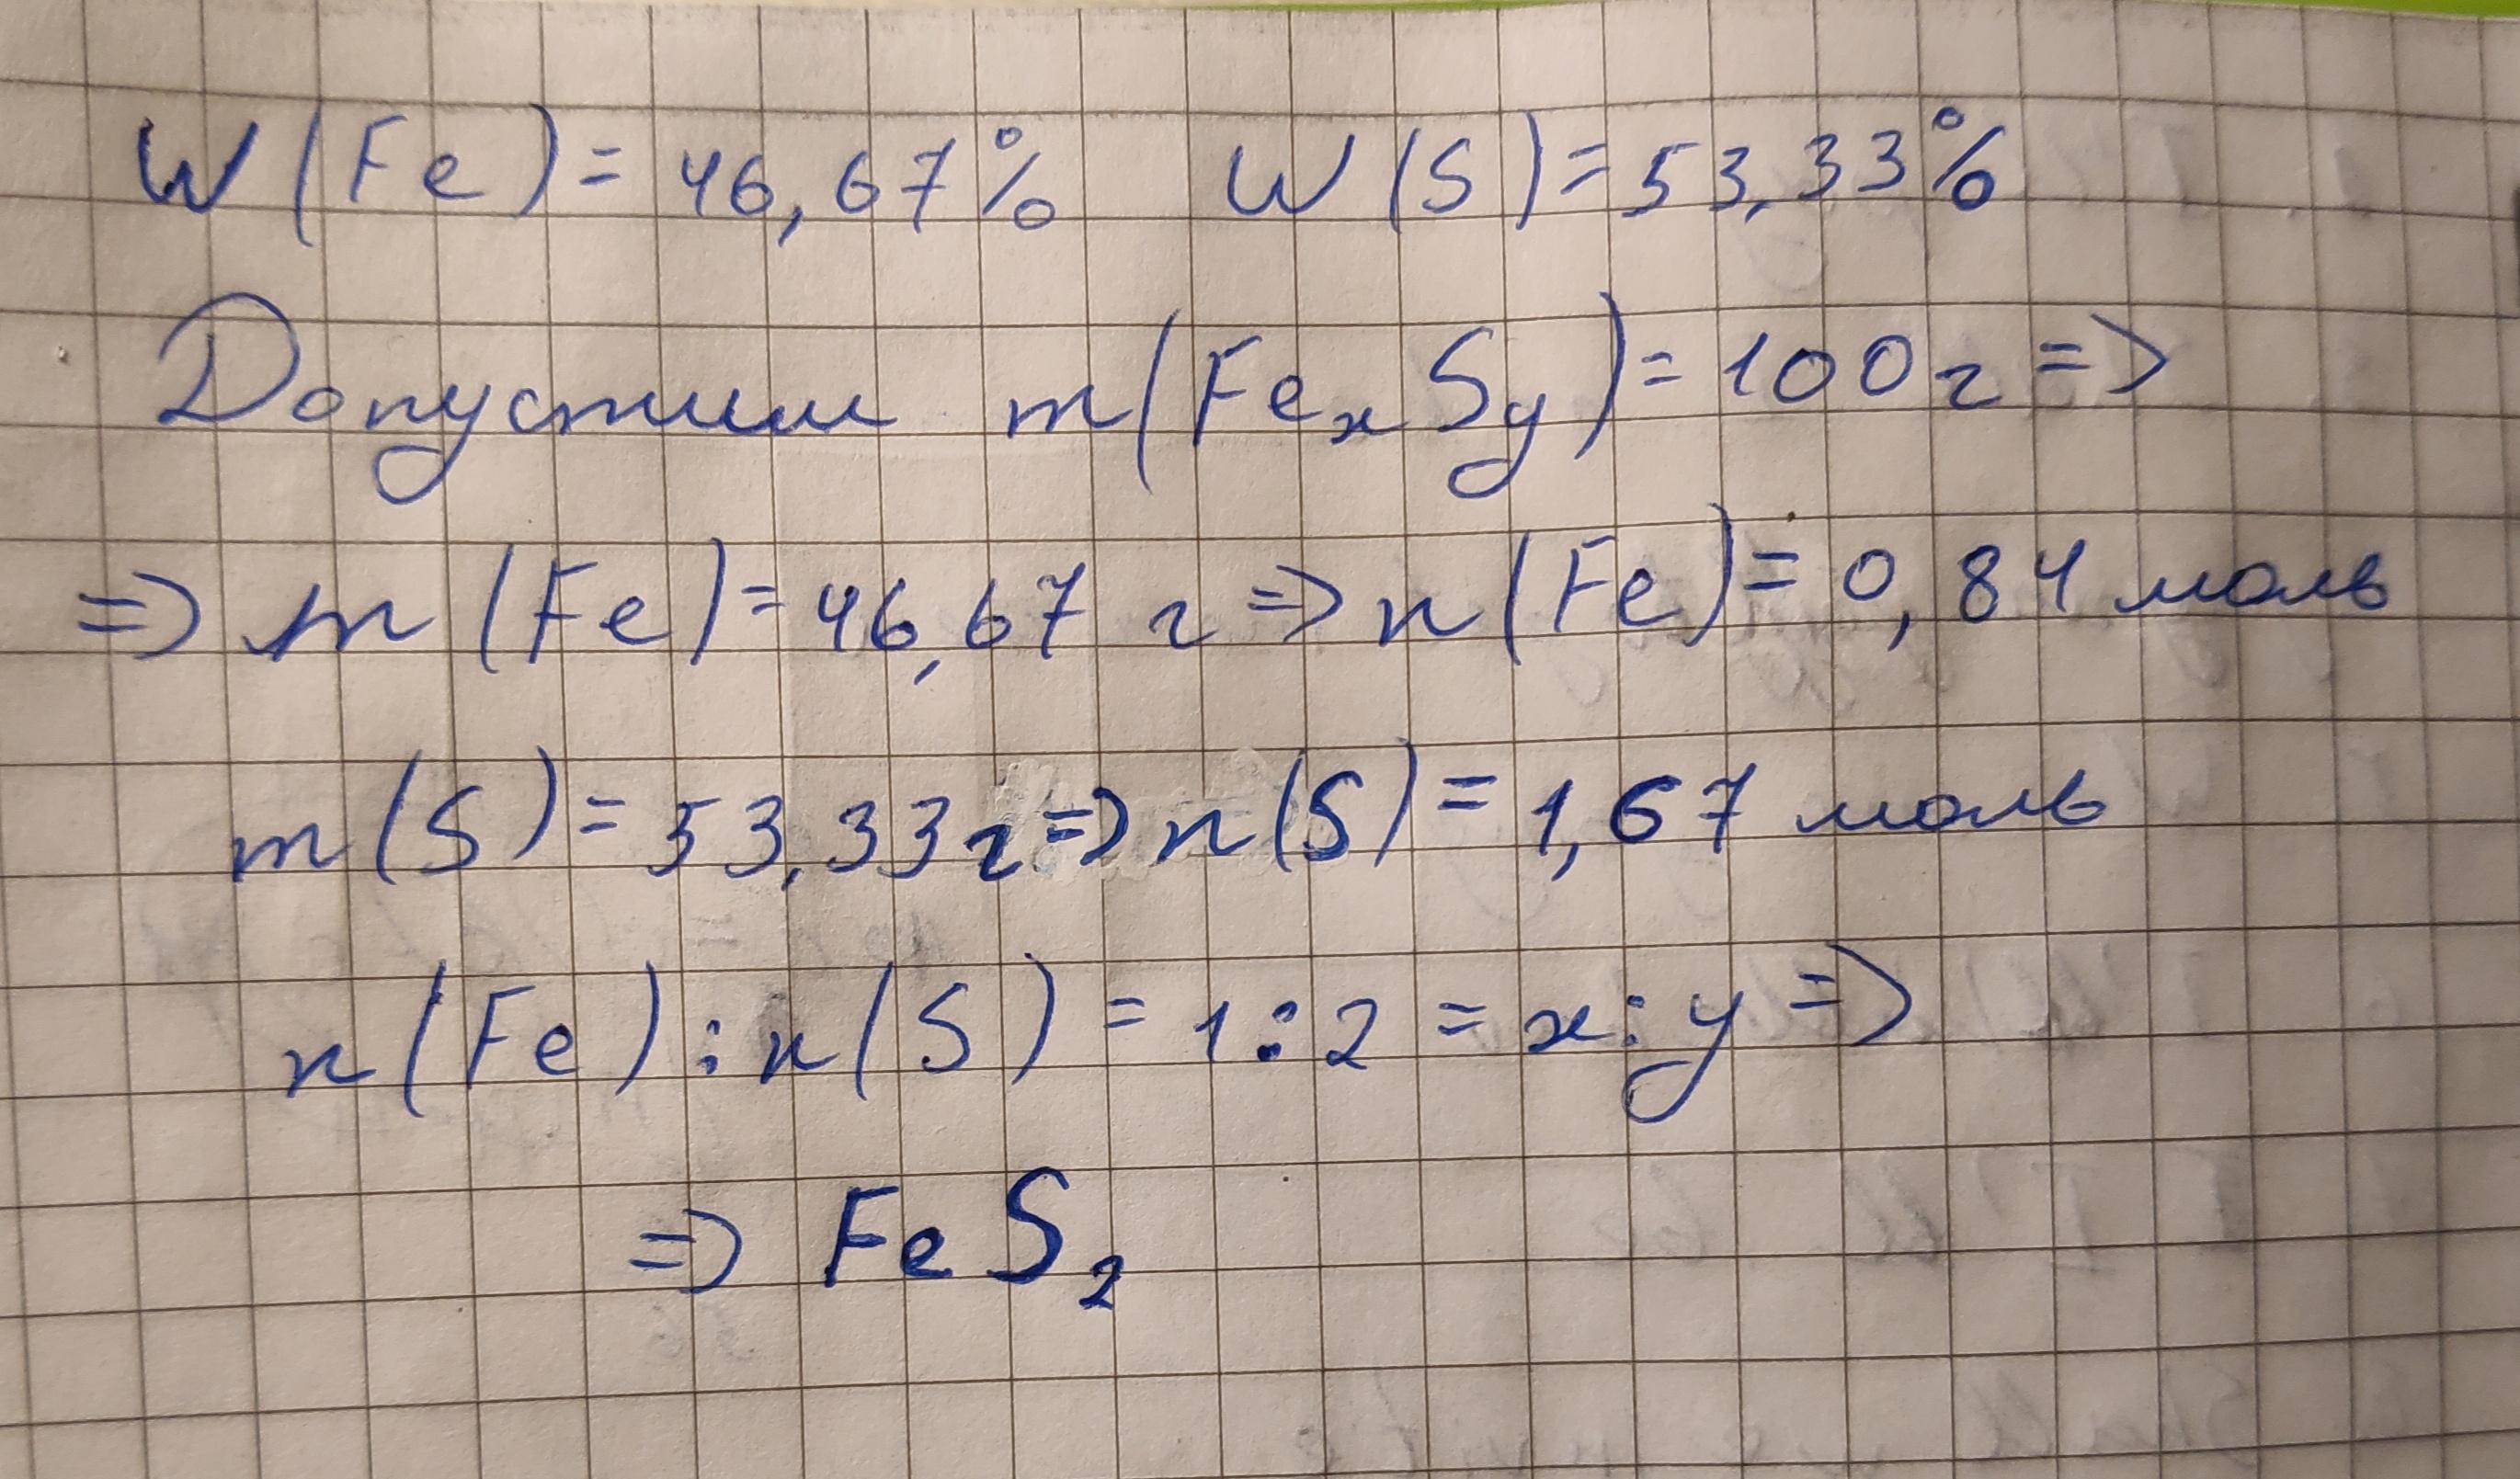 W(Fe)=46,67% W(S)=53,33%
Допустим m(FeₓSᵧ)=100г =>
=> m(Fe)=46,67 г => n(Fe)=0,84 моль
m(S)=53,33г => n(S)=1,67 моль
n(Fe):n(S)=1:2=x:y =>
=> FeS₂